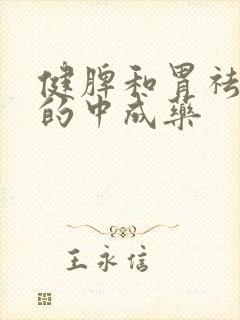 健脾和胃祛
的中成药
王永信